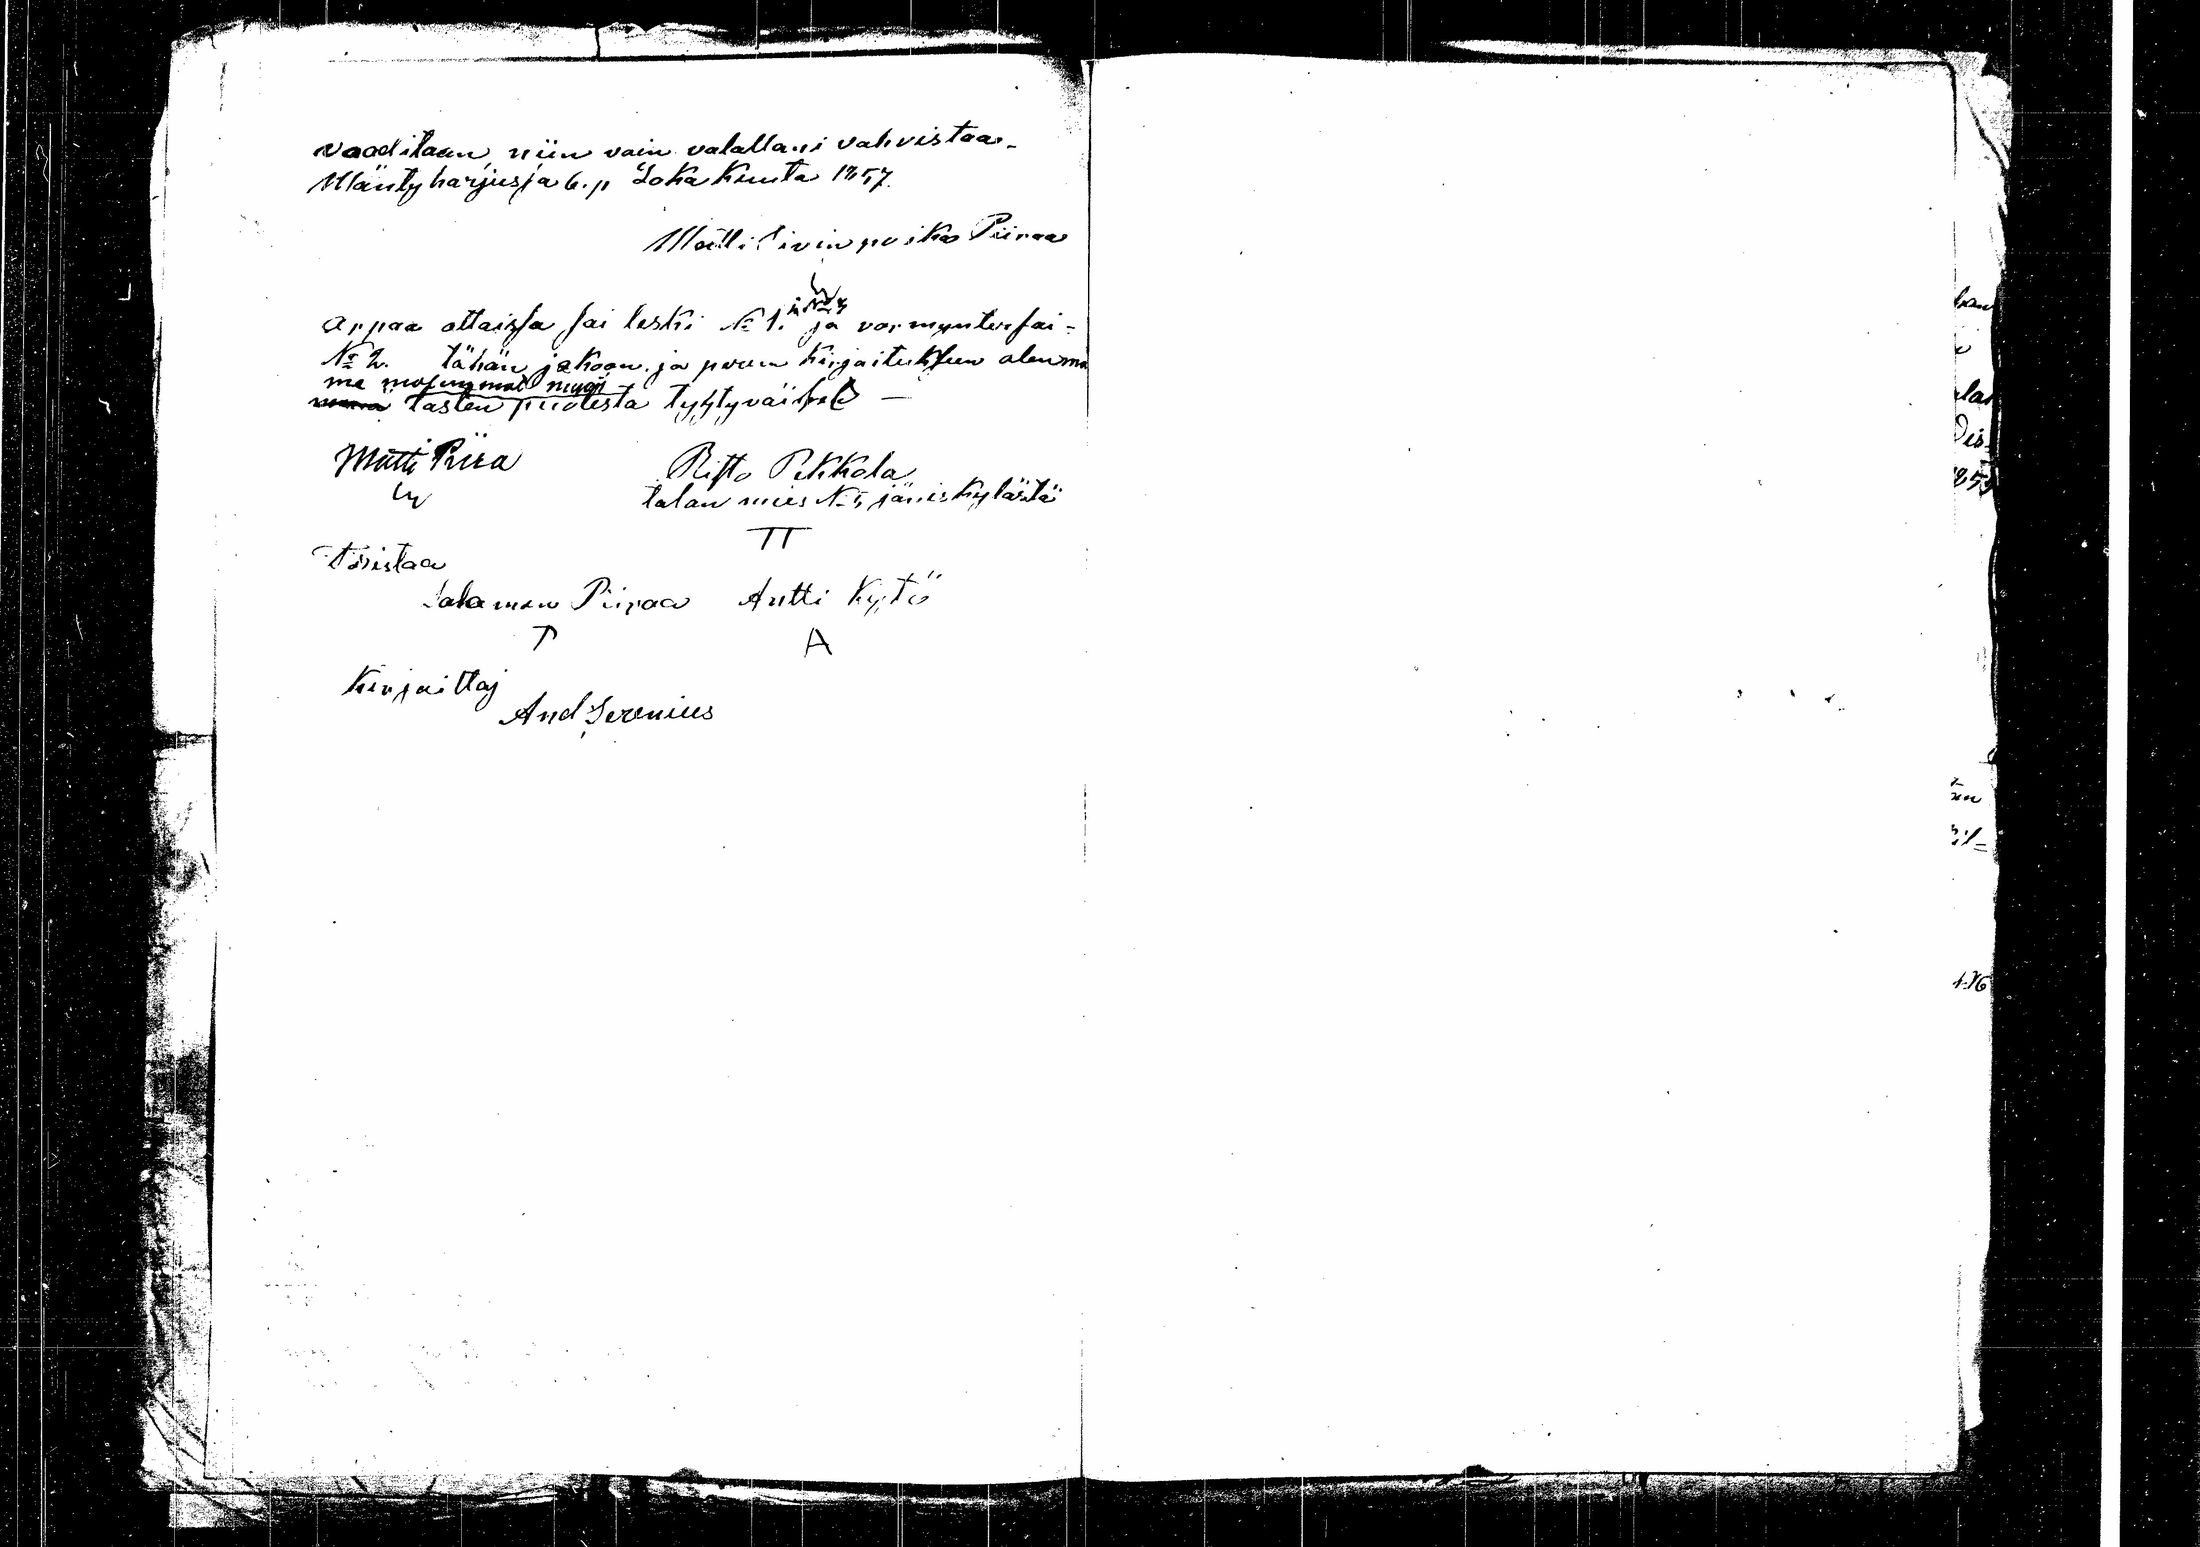 vaaditaan, niin vain valallani vahvistaa-
Mäntyharjusfa 6. p Loka Kuuta 1857.
Matti Sivin poika Piiraa
Arpaa ottaisfa fai leski № 1. ja vormynter fai=
№ 2. tähän jakoon ja perun Kirjaitukfeen olemma
me molemmat
lasten puolesta tyytyväifet —
Matti Piira
Rifto Pekkola
talan mies № 5 jänis Kylästä
TT
Toistaa
Salamon Piiraa Antti Kytö
A
Kirjaittaj
And Serenius
han
1-76